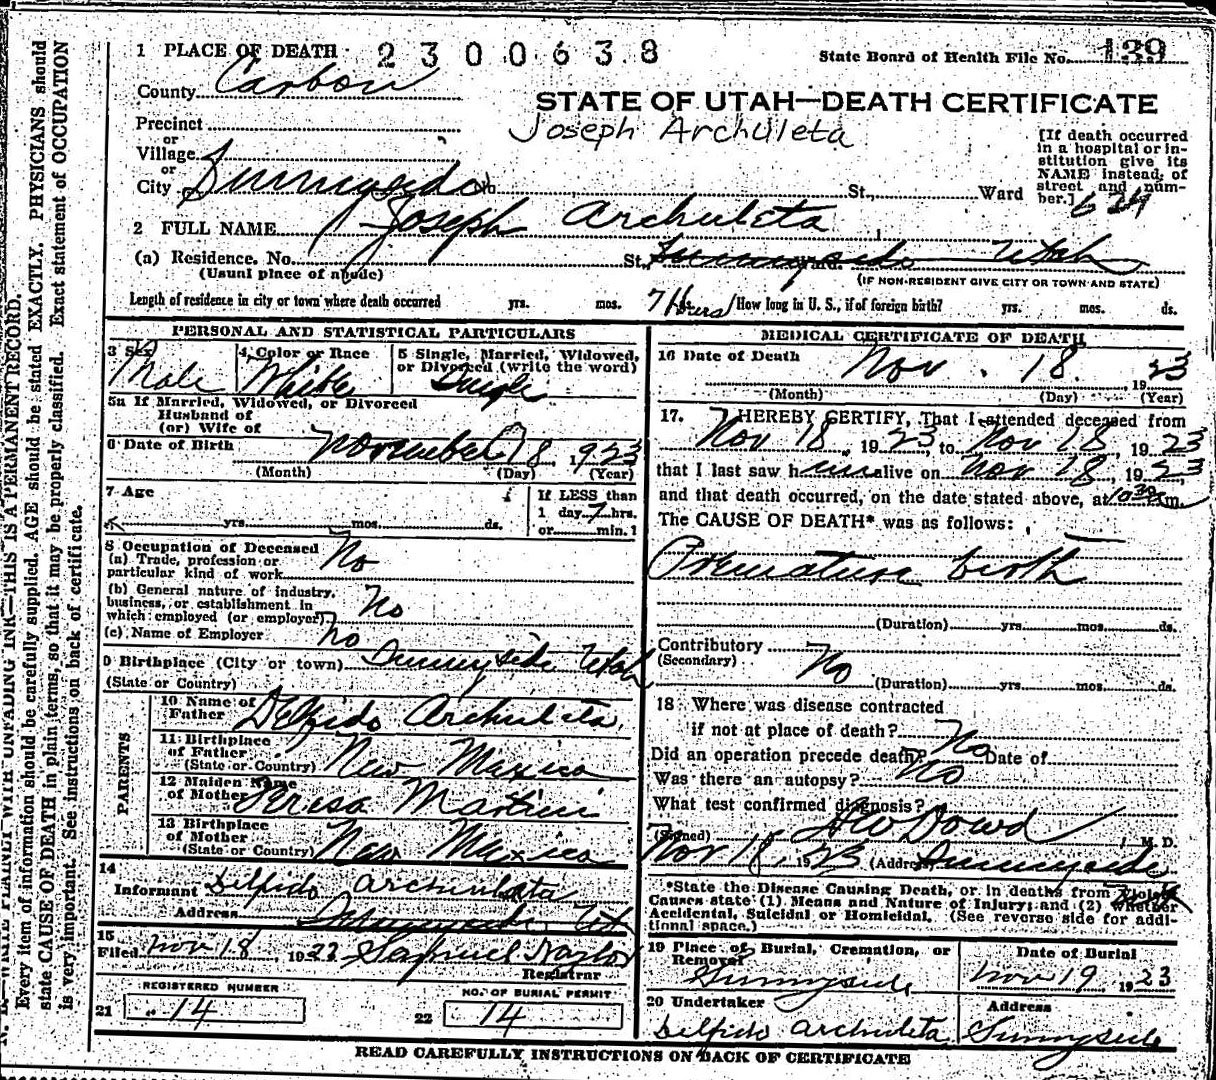 1 PLACE OF DEATH 2300638 State Board of Health File No. 139
County Carbon
STATE OF UTAH—DEATH CERTIFICATE
Joseph Archuleta
Precinct
or
Village
or
City Sunnyside No. St., Ward
[If death occurred
in a hospital or in-
stitution give its
NAME instead of
street and num-
ber.] 624
2 FULL NAME Joseph Archuleta
(a) Residence. No. St., Sunnyside Ward. Utah
(Usual place of abode) (IF NON-RESIDENT GIVE CITY OR TOWN AND STATE)
Length of residence in city or town where death occurred yrs. mos. 7 Hours ds. How long in U. S., if of foreign birth? yrs. mos. ds.
PERSONAL AND STATISTICAL PARTICULARS
3 Sex
Male
4 Color or Race
White
5 Single, Married, Widowed,
or Divorced (write the word)
Single
5a If Married, Widowed, or Divorced
Husband of
(or) Wife of
6 Date of Birth November 18 1923
(Month) (Day) (Year)
7 Age
yrs. mos. ds.
If LESS than
1 day 7 hrs.
or min.
8 Occupation of Deceased
(a) Trade, profession or
particular kind of work No
(b) General nature of industry,
business, or establishment in
which employed (or employer) No
(c) Name of Employer No
9 Birthplace (City or town) Sunnyside Utah
(State or Country)
PARENTS
10 Name of
Father Delfido Archuleta
11 Birthplace
of Father
(State or Country) New Mexico
12 Maiden Name
of Mother Teresa Martini
13 Birthplace
of Mother
(State or Country) New Mexico
14
Informant Delfido Archuleta
Address Sunnyside Ut
15
Filed Nov 18, 1923 Samuel
Registrar
REGISTERED NUMBER
21 14
NO. OF BURIAL PERMIT
22 14
MEDICAL CERTIFICATE OF DEATH
16 Date of Death Nov. 18. 1923
(Month) (Day) (Year)
17. I HEREBY CERTIFY, That I attended deceased from
Nov 18, 1923, to Nov 18, 1923
that I last saw him alive on Nov 18, 1923
and that death occurred, on the date stated above, at 10 30 m.
The CAUSE OF DEATH* was as follows:
Premature birth
(Duration) yrs. mos. ds.
Contributory
(Secondary) No
(Duration) yrs. mos. ds.
18 Where was disease contracted
if not at place of death? No
Did an operation precede death? No Date of
Was there an autopsy?
What test confirmed diagnosis?
(Signed) Dowd, M. D.
Nov 18, 1923 (Address) Sunnyside
*State the Disease Causing Death, or in deaths from Violent
Causes state (1) Means and Nature of Injury; and (2) whether
Accidental, Suicidal or Homicidal. (See reverse side for addi-
tional space.)
19 Place of Burial, Cremation, or
Removal
Sunnyside
Date of Burial
Nov 19 1923
20 Undertaker
Delfido Archuleta
Address
Sunnyside
READ CAREFULLY INSTRUCTIONS ON BACK OF CERTIFICATE
N. B.—WRITE PLAINLY WITH UNFADING INK—THIS IS A PERMANENT RECORD.
Every item of information should be carefully supplied. AGE should be stated EXACTLY. PHYSICIANS should
state CAUSE OF DEATH in plain terms, so that it may be properly classified. Exact statement of OCCUPATION
is very important. See instructions on back of certificate.